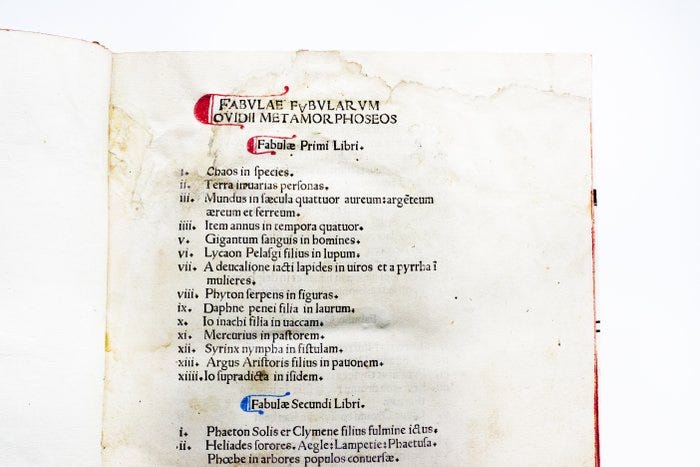 FABVLAE FVBVLARVM
OVIDII METAMORPHOSEOS
Fabulæ Primi Libri.
i. Chaos in ſpecies.
ii. Terra inuarias perſonas.
iii. Mundus in ſæcula quattuor aureum:argẽteum
æreum et ferreum.
iiii. Item annus in tempora quatuor.
v. Gigantum ſanguis in homines.
vi. Lycaon Pelaſgi filius in lupum.
vii. A deucalione iacti lapides in uiros et a pyrrha ĩ
mulieres.
viii. Phyton ſerpens in figuras.
ix. Daphne penei filia in laurum.
x. Io inachi filia in uaccam.
xi. Mercurius in paſtorem.
xii. Syrinx nympha in fiſtulam.
xiii. Argus Ariſtoris filius in pauonem.
xiiii. Io ſupradicta in iſidem.
Fabulæ Secundi Libri.
i. Phaeton Solis er Clymene filius fulmine ictus.
ii. Heliades ſorores. Aegle: Lampetie: Phaetuſa.
Phœbe in arbores populos conuerſæ.